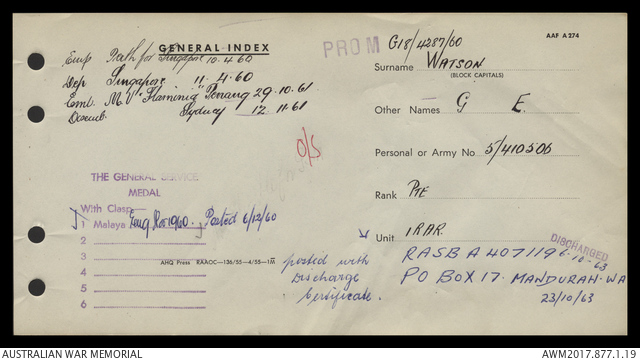 GENERAL INDEX
AAF A 274
PROM
G18/4287/60
Emp Perth for Singapore 10.4.60
Dep Singapore 11.4.60
Emb. M.V. "Flaminia" Penang 29.10.61
Disemb. Sydney 12.11.61
Surname WATSON
(BLOCK CAPITALS)
Other Names G E.
O/S
Personal or Army No 5/410506
THE GENERAL SERVICE
MEDAL
With Clasp
1 Malaya Reg 1960. Posted 6/12/60
2
3
4
5
6
Rank PTE
Unit 1 RAR.
AHQ Press RAAOC—136/55—4/55—1M
posted with
Discharge
Certificate.
DISCHARGED
6.10.63
RASB A407119
PO BOX 17. MANDURAH. WA
23/10/63
AUSTRALIAN WAR MEMORIAL
AWM2017.877.1.19